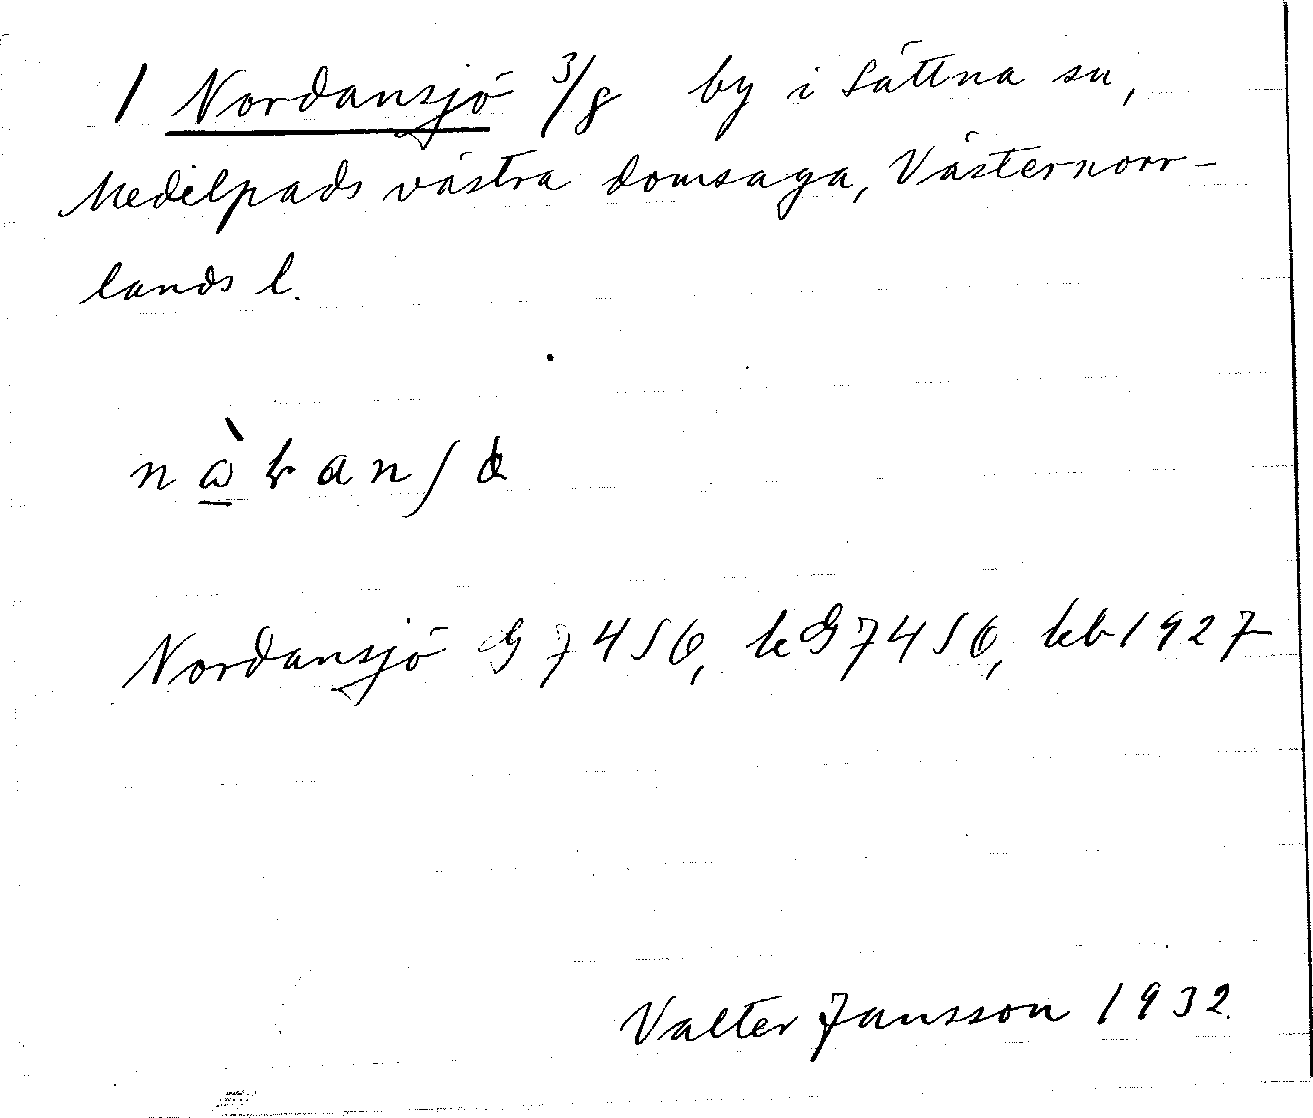 1 Nordansjö 3/8 by i Sättna sn,
Medelpads västra domsaga, Västernorr-
lands l.
Nordansjö G 7456, kG 7456, kb 1927
Valter Jansson 1932.